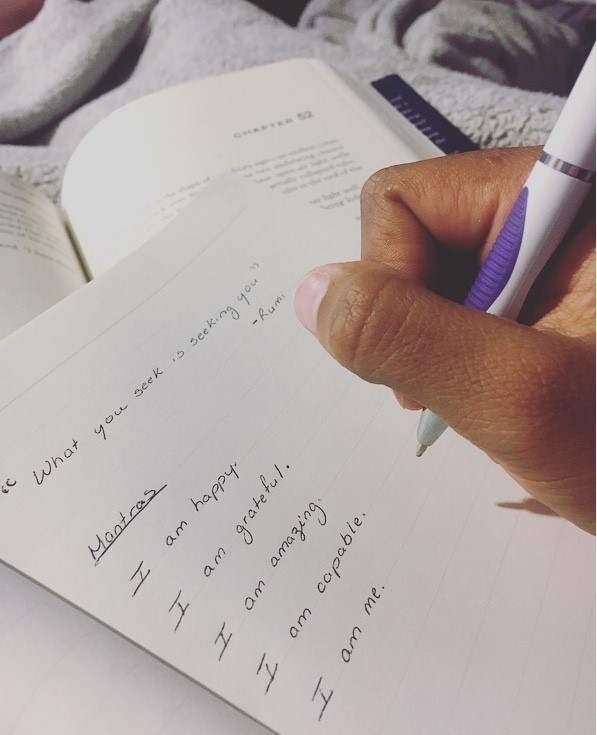 CHAPTER 52
"What you seek is seeking you"
-Rumi
Mantras
I am happy.
I am grateful.
I am amazing.
I am capable.
I am me.